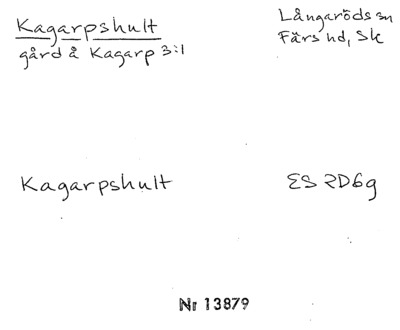 Kagarpshult
gård å Kagarp 3:1
Långaröds sn
Färs hd, Sk
Kagarpshult
ES 2D6g
Nr 13879